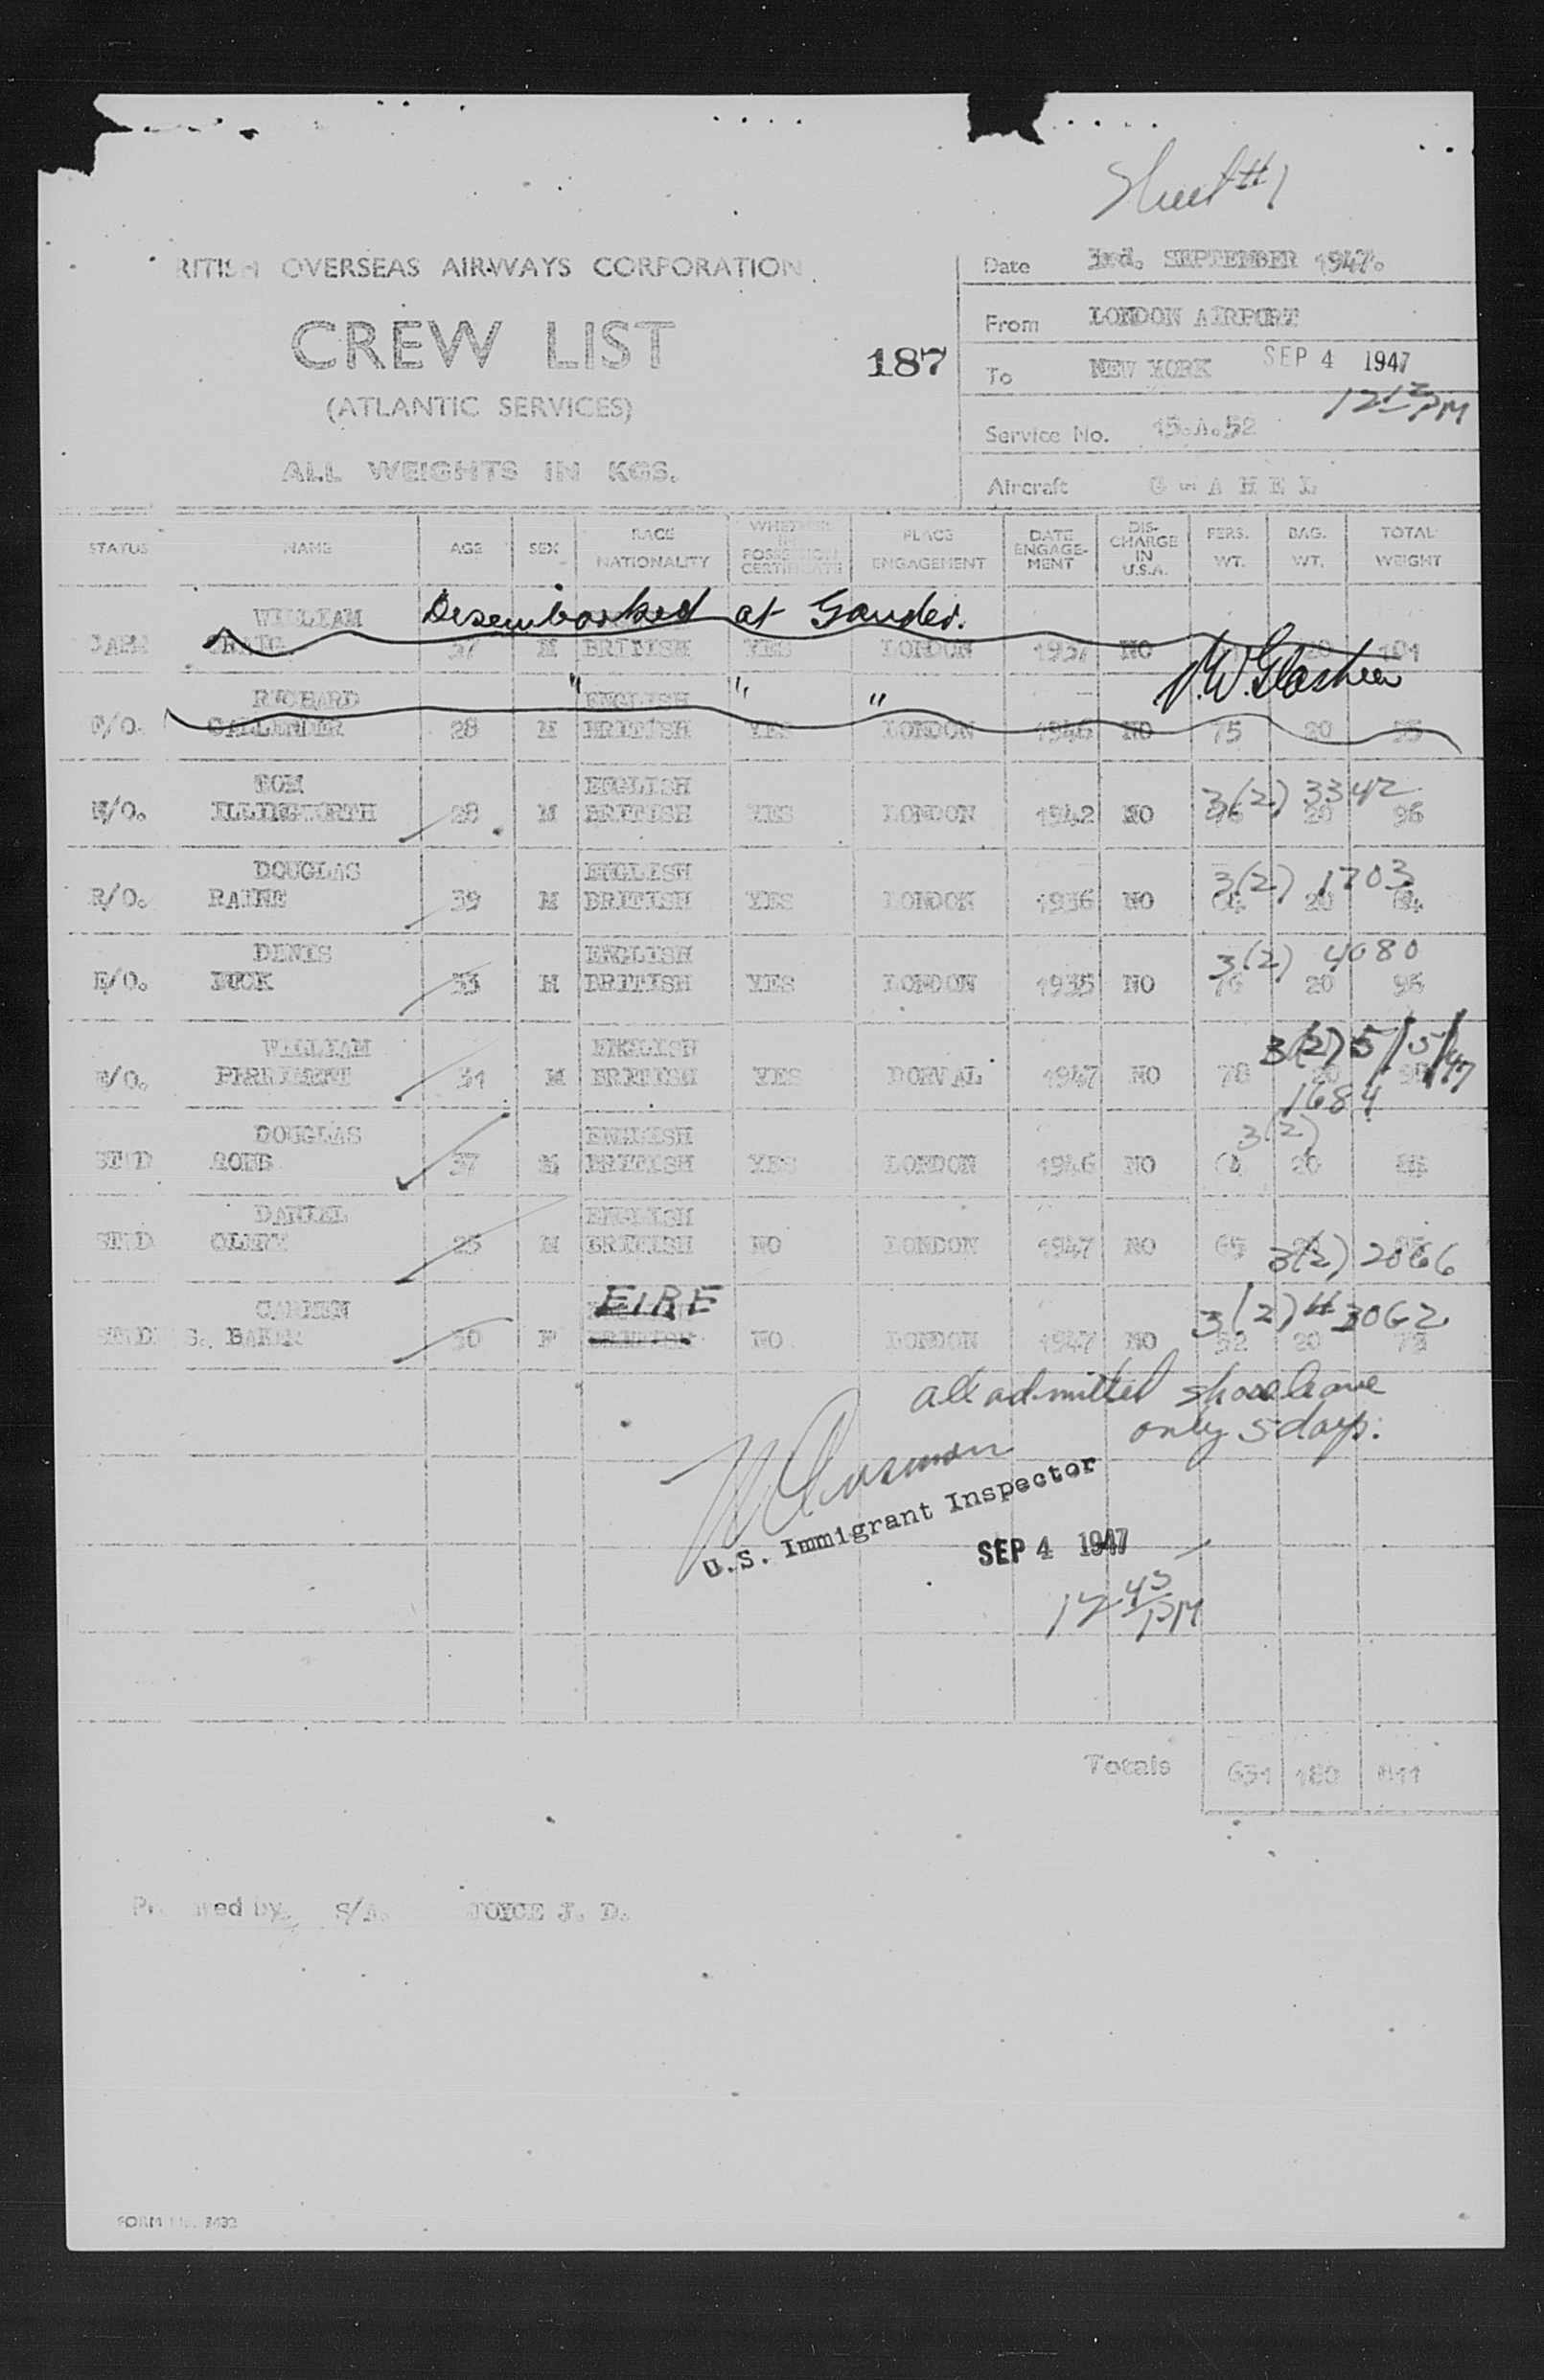 Sheet #1
RITISH OVERSEAS AIRWAYS CORPORATION
CREW LIST
(ATLANTIC SERVICES)
ALL WEIGHTS IN KGS.
187
Date 3rd. SEPTEMBER 1947.
From LONDON AIRPORT
To NEW YORK SEP 4 1947
12 12 PM
Service No. 15.A.52
Aircraft G - A H E L
STATUS NAME AGE SEX RACE NATIONALITY WHETHER IN POSSESSION CERTIFICATE PLACE ENGAGEMENT DATE ENGAGE-MENT DIS-CHARGE IN U.S.A. PERS. WT. BAG. WT. TOTAL WEIGHT
WILLIAM Desembarked at Gander.
CRAIG 37 M BRITISH YES LONDON 1937 NO 20 101
RICHARD " ENGLISH " "
F/O. CALLENDER 28 M BRITISH YES LONDON 1946 NO 75 20 95
TOM ENGLISH 3(2) 3342
N/O. ILLINGWORTH 28 M BRITISH YES LONDON 1942 NO 76 20 96
DOUGLAS ENGLISH 3(2) 1703
R/O. RAINE 39 M BRITISH YES LONDON 1936 NO 64 20 84
DENIS ENGLISH 3(2) 4080
E/O. 33 M BRITISH YES LONDON 1935 NO 76 20 96
WILLIAM ENGLISH 3(2) 5/5/47
31 M BRITISH YES DORVAL 1947 NO 78 20 98
1684
DOUGLAS ENGLISH 3(2)
STWD 37 M BRITISH YES LONDON 1946 NO 64 20 84
DANIEL ENGLISH
STWD 25 M BRITISH NO LONDON 1947 NO 65
3(2) 2066
CARMEN EIRE 3(2) # 3062
S. BAKER 30 F BRITISH NO LONDON 1947 NO 52 20 72
all admitted shore leave
only 5 days.
U.S. Immigrant Inspector
SEP 4 1947
12 45 PM
Totals 631 180 811
Pr ared by. S/A. JOYCE J. D.
FORM No. 3432